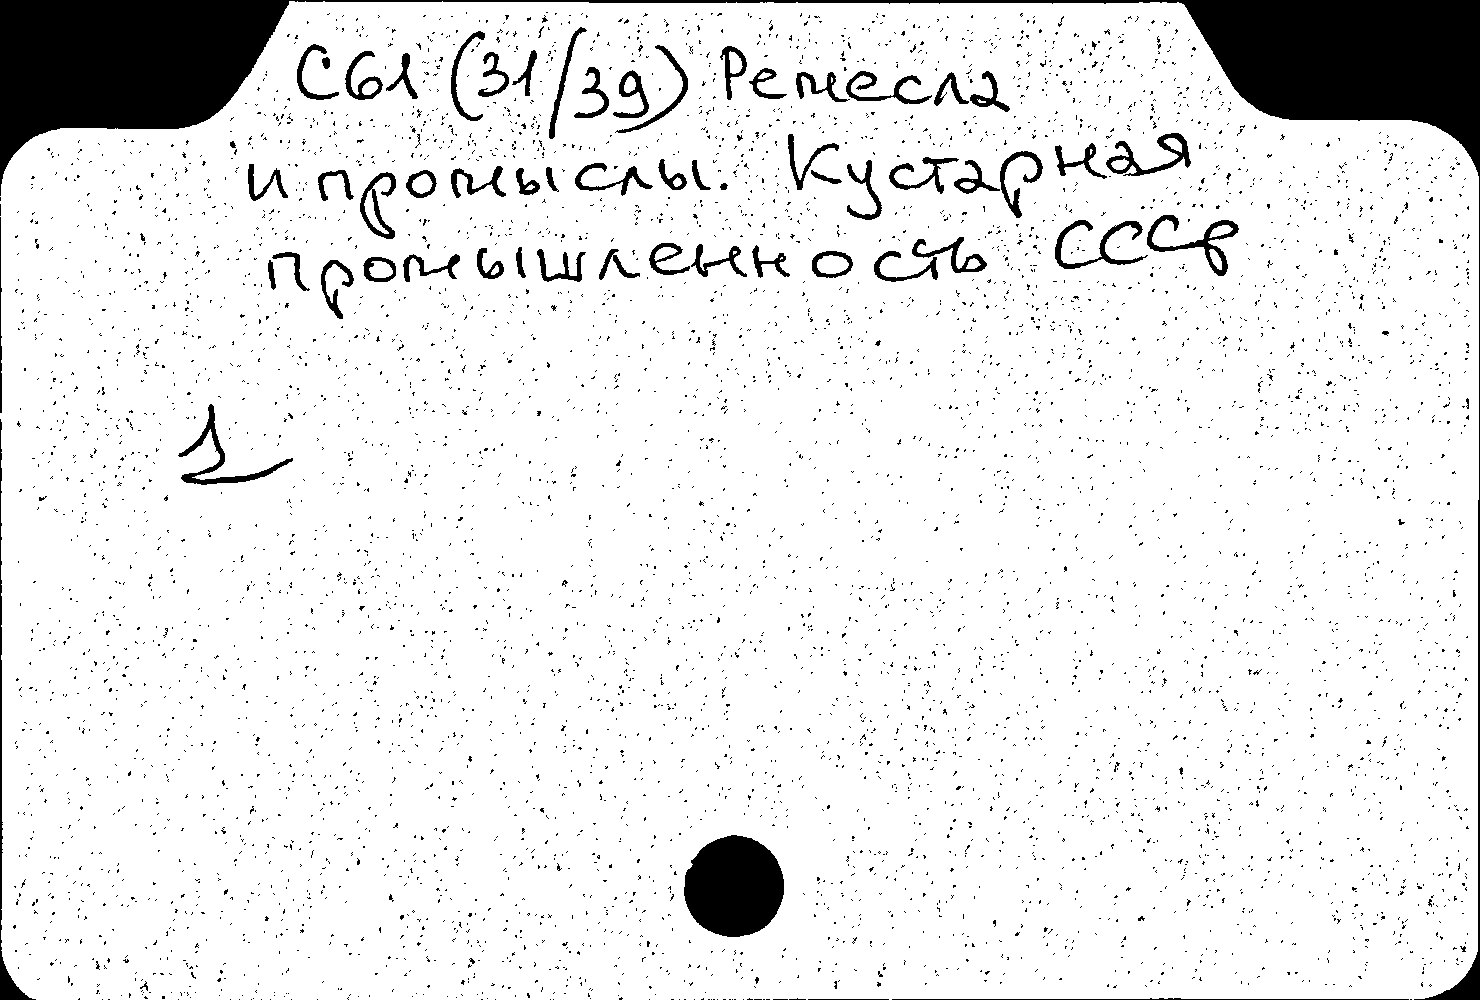 С61 (31/39) Ремесла
и промыслы. Кустарная
промышленность СССР
1